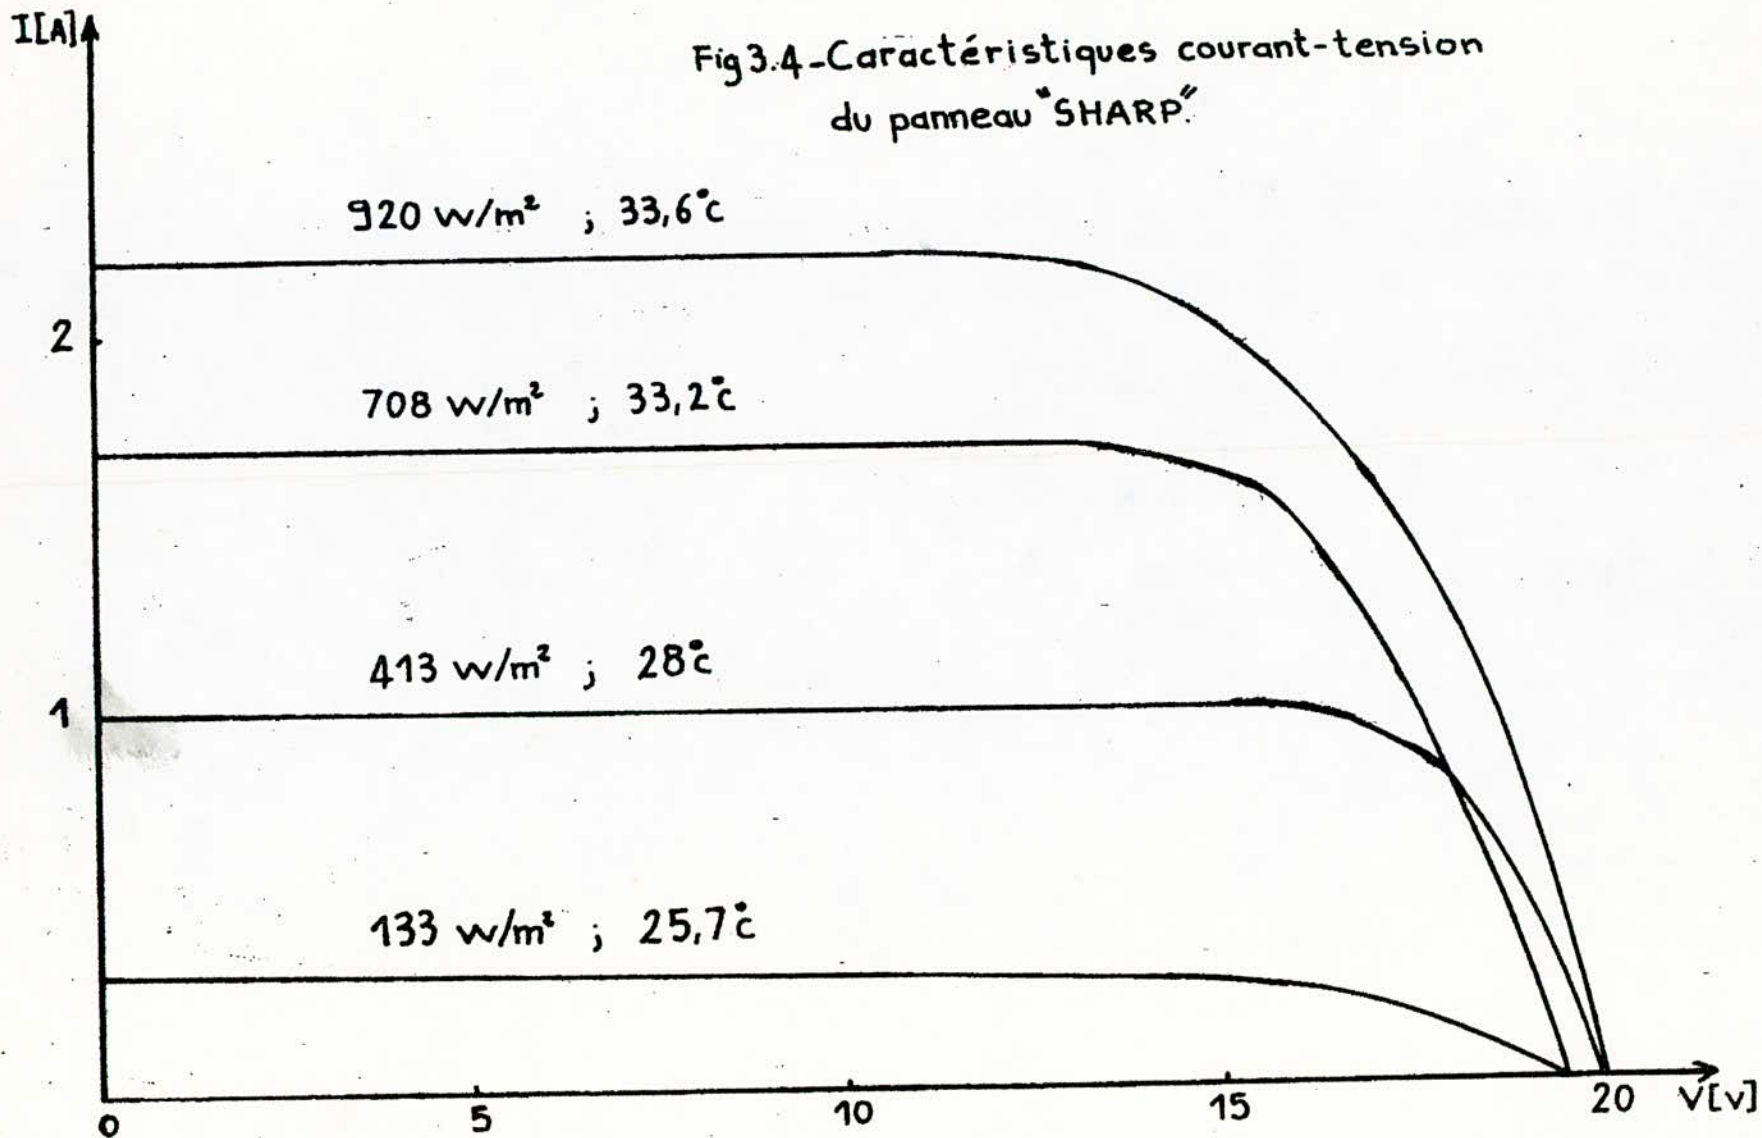 I[A]
Fig 3.4-Caractéristiques courant-tension
du panneau "SHARP".
920 w/m² ; 33,6°c
2
708 w/m² ; 33,2°c
413 w/m² ; 28°c
1
133 w/m² ; 25,7°c
0 5 10 15 20 V[v]